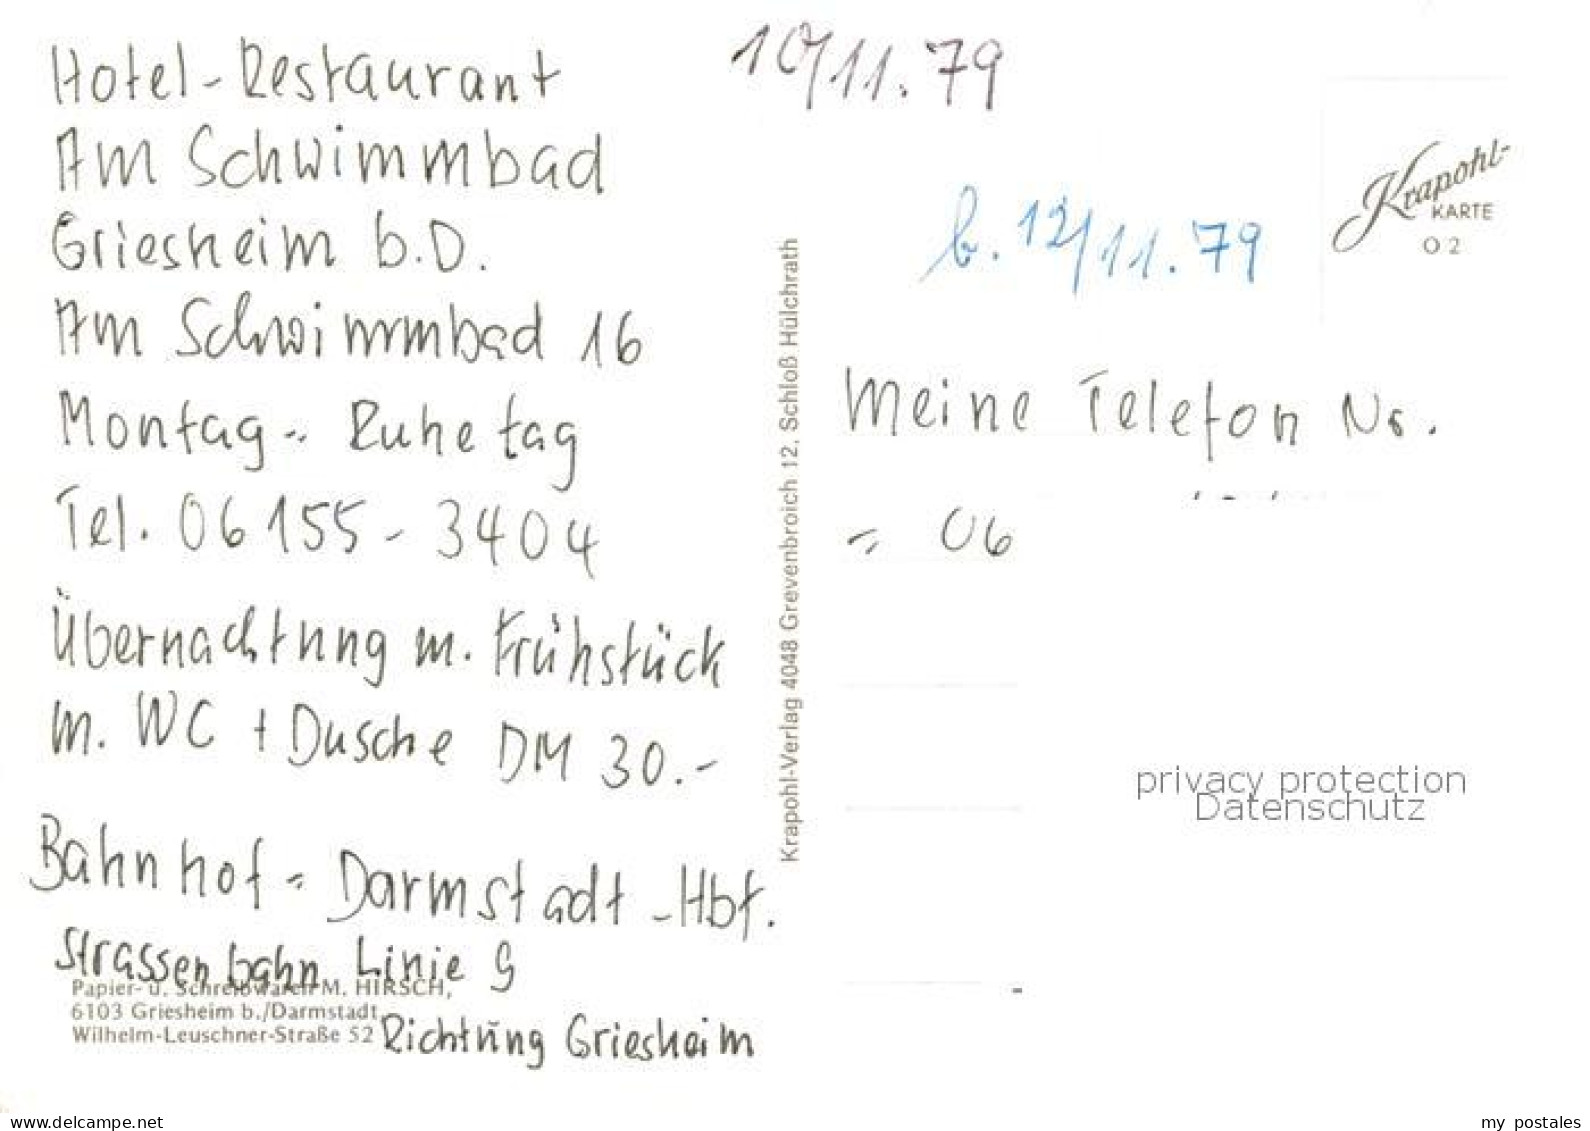 Hotel-Restaurant
Am Schwimmbad
Griesheim b.D.
Am Schwimmbad 16
Montag -- Ruhetag
Tel. 06155-3404
Übernachtung m. Frühstück
m. WC + Dusche DM 30.-
Bahnhof = Darmstadt - Hbf.
Strassenbahn Linie 9
Richtung Griesheim
Papier- u. Schreibwaren M. HIRSCH,
6103 Griesheim b./Darmstadt,
Wilhelm-Leuschner-Straße 52
Krapohl-Verlag 4048 Grevenbroich 12, Schloß Hülchrath
10/11.79
b. 12/11.79
Krapohl-
KARTE
O 2
Meine Telefon Nr.
= 06
privacy protection
Datenschutz
www.delcampe.net
my_postales